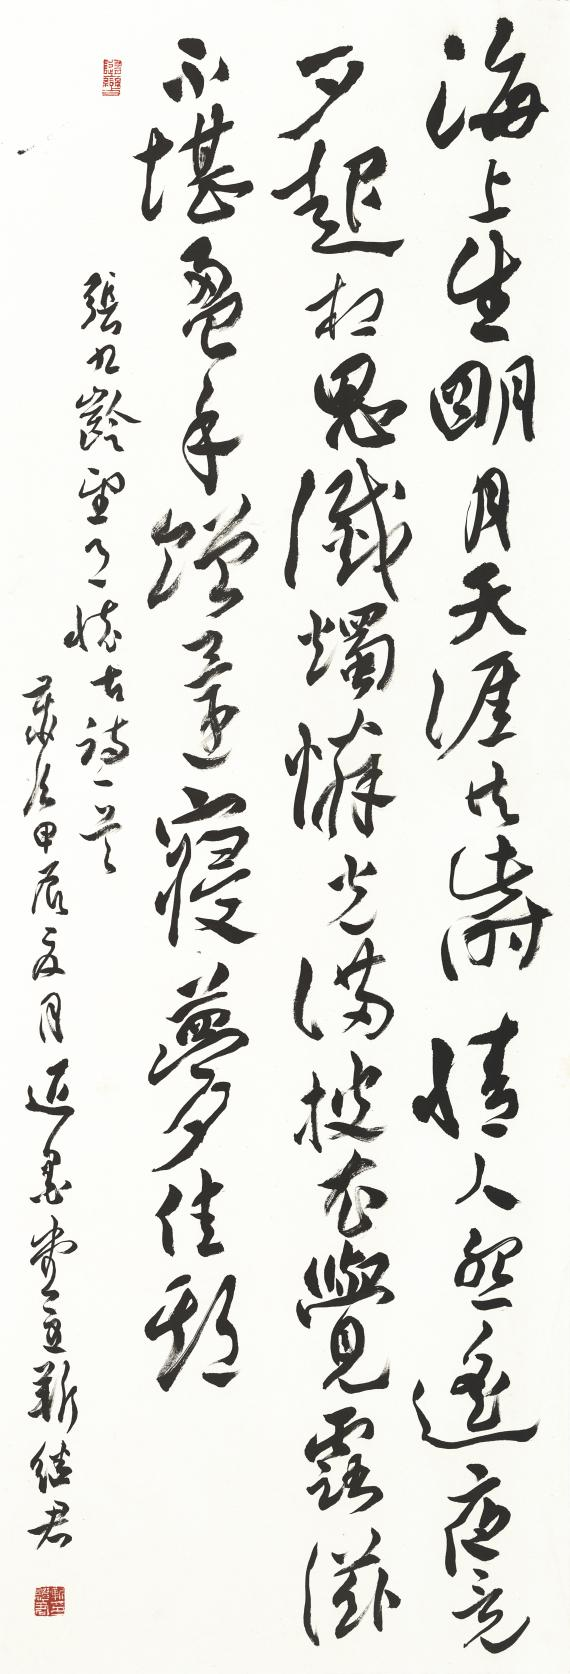 海上生明月天涯共此時情人怨遙夜竟
夕起相思滅燭憐光滿披衣覺露滋
不堪盈手贈還寢夢佳期
張九齡望月懷古詩一首
歲次甲辰夏月近墨堂主靳繼君